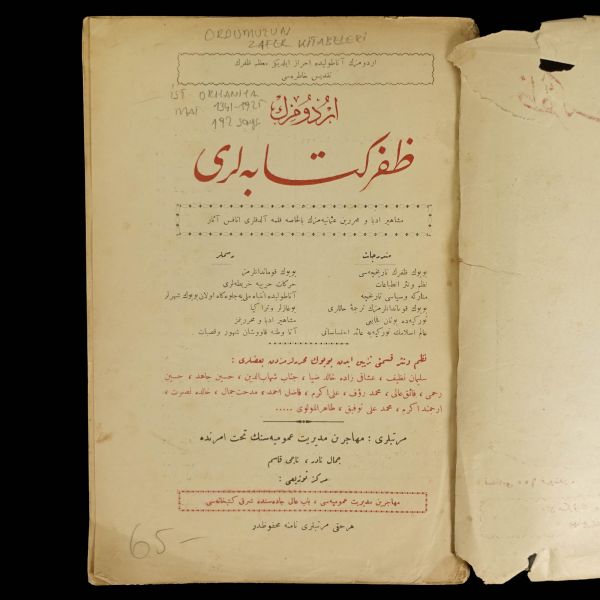 ORDUMUZUN
ZAFER KİTABELERİ
اردومزك آناطولیده احراز ایلدیكی معظم ظفرك
تقدیس خاطره‌سی
İST ORHANİYE
MAT 1341-1925
192 sayfa
اردومزك
ظفر كتابه‌لری
مشاهیر ادبا و محررین عثمانیه‌مزك بالخاصه قلمه آلدقلری انفس آثار
مندرجات
بویوك ظفرك تاریخچه‌سی
نظم و نثر انطباعات
متاركه و سیاسی تاریخچه
بویوك قوماندانلرمزك ترجمهٔ حاللری
توركیه‌ده یونان فجایعی
عالم اسلامك توركیه‌یه عائد احتساساتی
رسملر
بویوك قوماندانلرمز
حركات حربیه خریطه‌لری
آناطولیده انتباه ملی‌یه جلوه‌كاه اولان بویوك شهرلر
بوغازلر و تراكیا
مشاهیر ادبا و محررلرمز
آنا وطنه قاووشان شهر و قصبات
نظم و نثر قسمنی تزیین ایدن بویوك محررلرمزدن بعضلری :
سلیمان نظیف ، عشاقی زاده خالد ضیا ، جناب شهاب‌الدین ، حسین جاهد ، حسین
رحمی ، فائق عالی ، محمد رؤف ، علی اكرم ، فاضل احمد ، مدحت جمال ، خالده نصرت ،
ارجمند اكرم ، محمد علی توفیق ، طاهر المولوی .....
مرتبلری : مهاجرین مدیریت عمومیه‌سنك تحت امرنده
جمال نادر ، ناجی قاسم
مركز توزیعی :
مهاجرین مدیریت عمومیه‌سی ، باب عالی جاده‌سنده شرق كتبخانه‌سی
هر حقی مرتبلری نامنه محفوظدر
65-